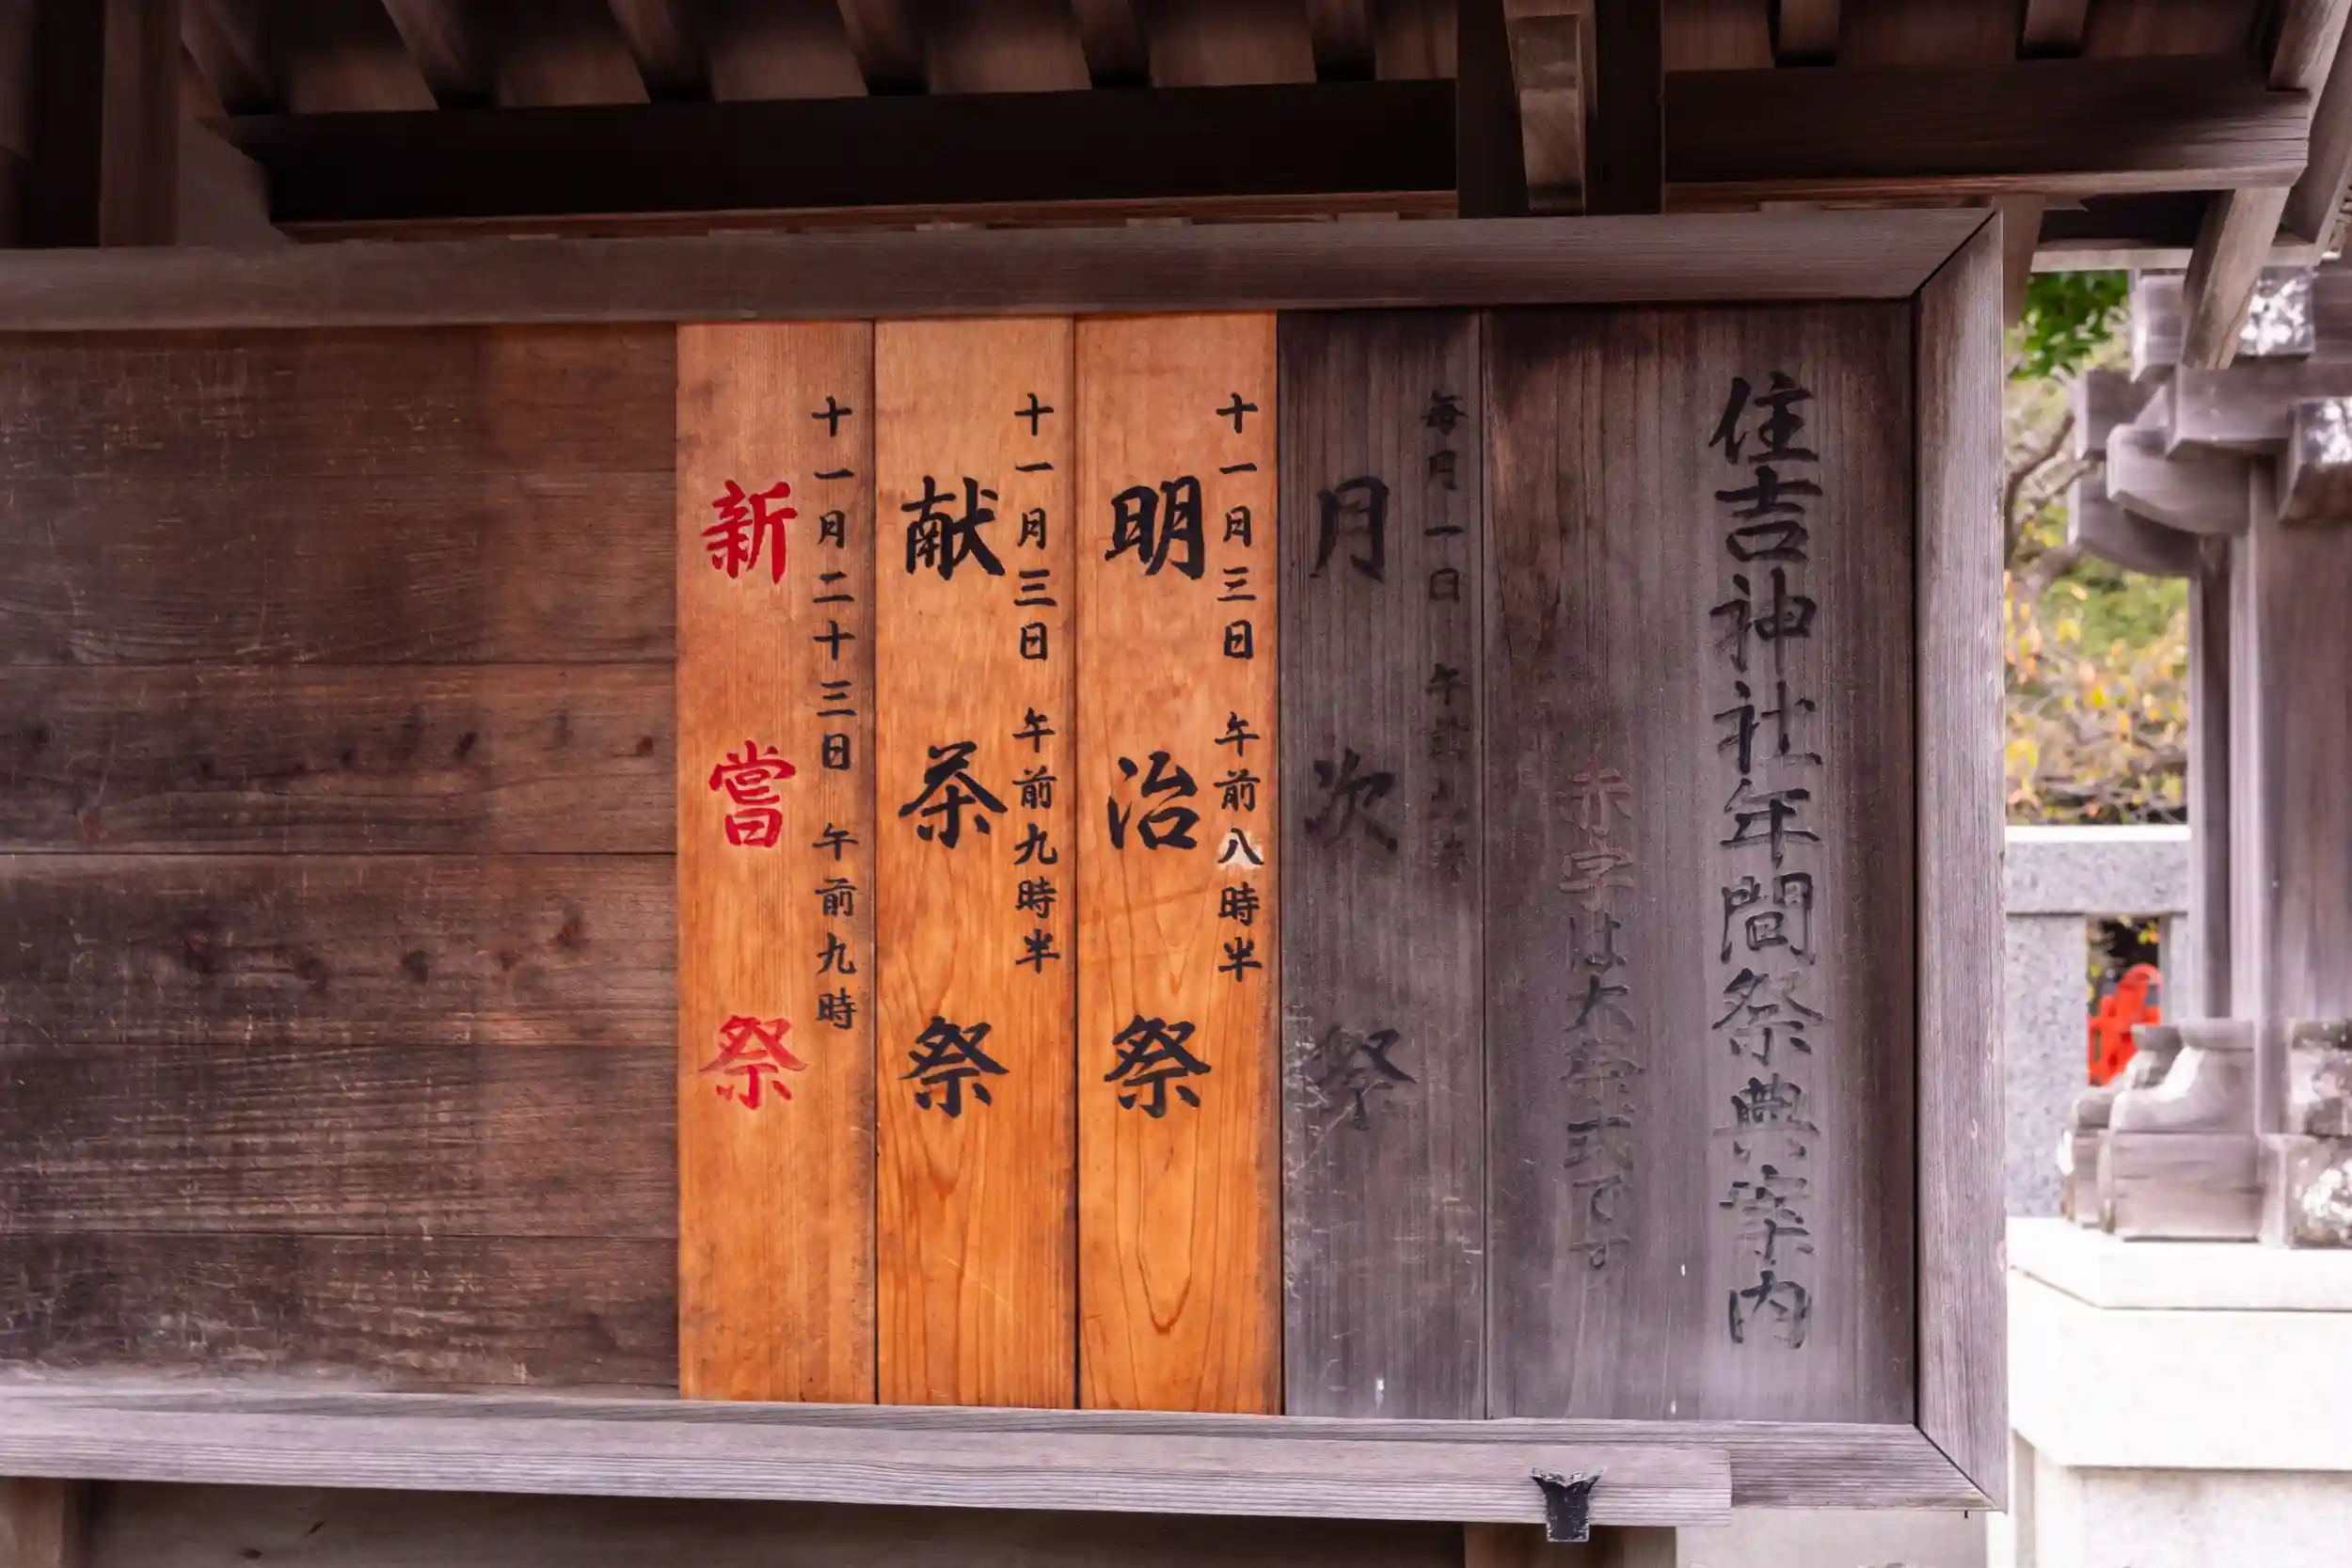 住吉神社年間祭典案内
赤字は大祭式です
毎月一日 午前
月次祭
十一月三日 午前八時半
明治祭
十一月三日 午前九時半
献茶祭
十一月二十三日 午前九時
新嘗祭